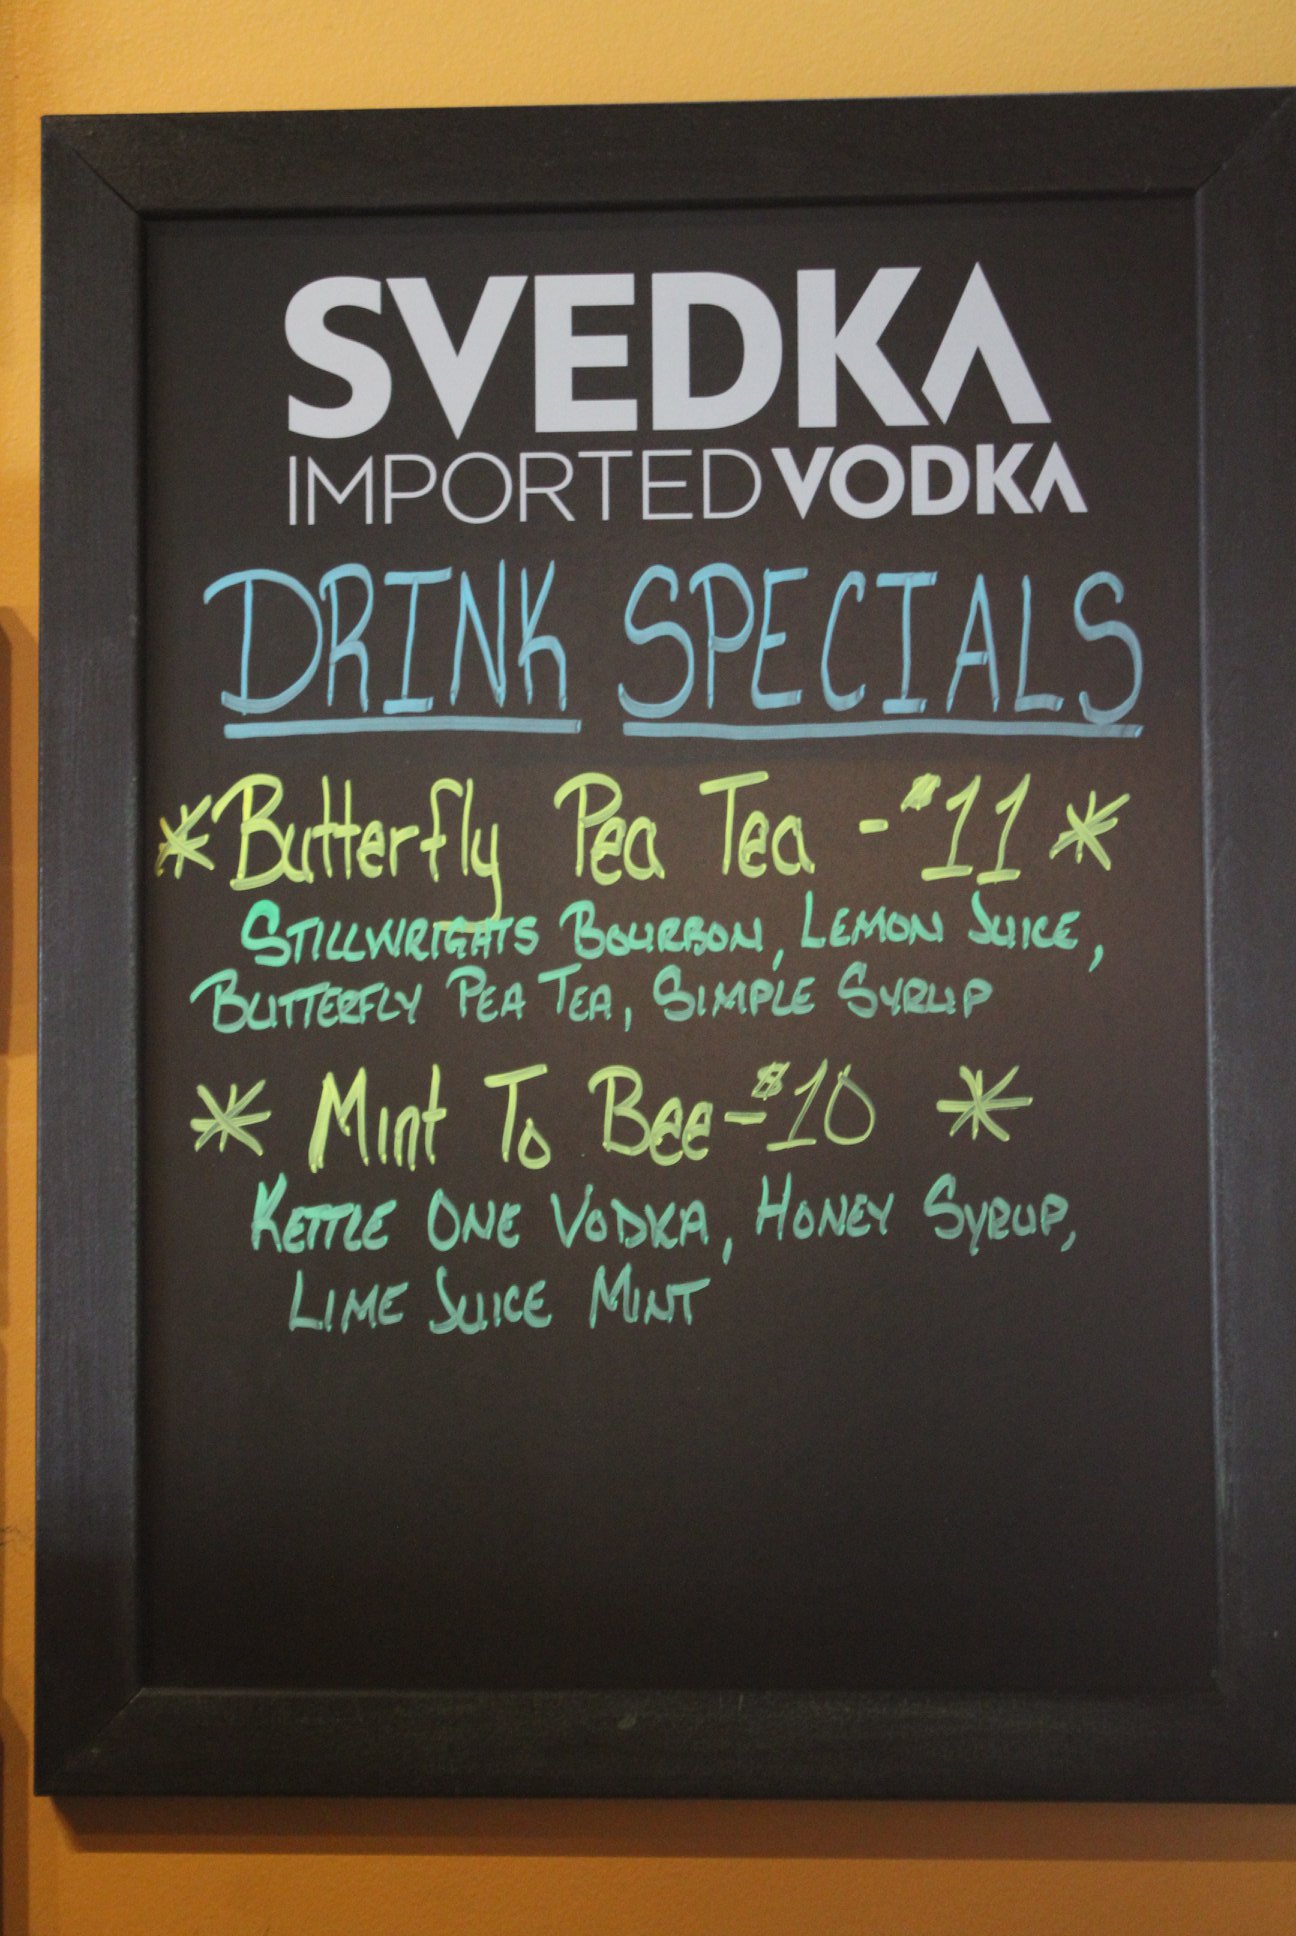 SVEDKA
IMPORTED VODKA
DRINK SPECIALS
*Butterfly Pea Tea - $11 *
STILLWRIGHTS BOURBON, LEMON JUICE,
BUTTERFLY PEA TEA, SIMPLE SYRUP
* Mint To Bee - $10 *
KETTLE ONE VODKA, HONEY SYRUP,
LIME JUICE MINT